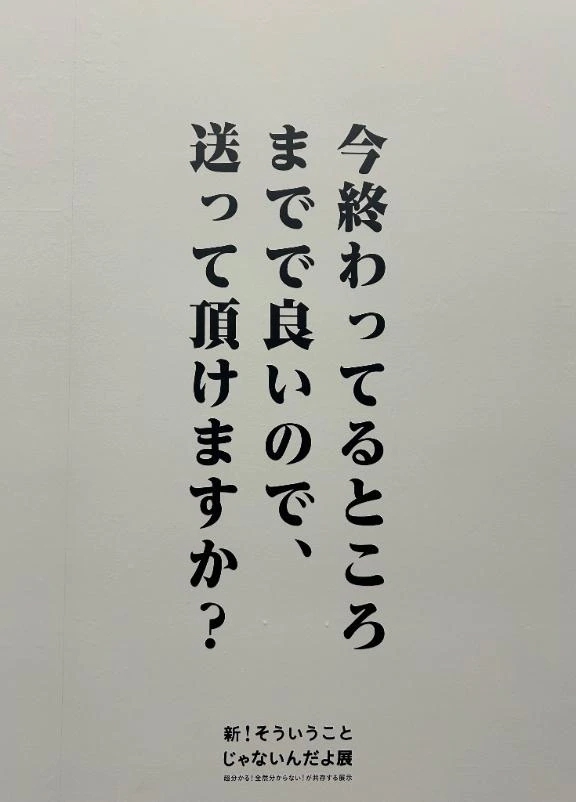 今終わってるところ
までで良いので、
送って頂けますか？
新！そういうこと
じゃないんだよ展
超分かる！全然分からない！が共存する展示